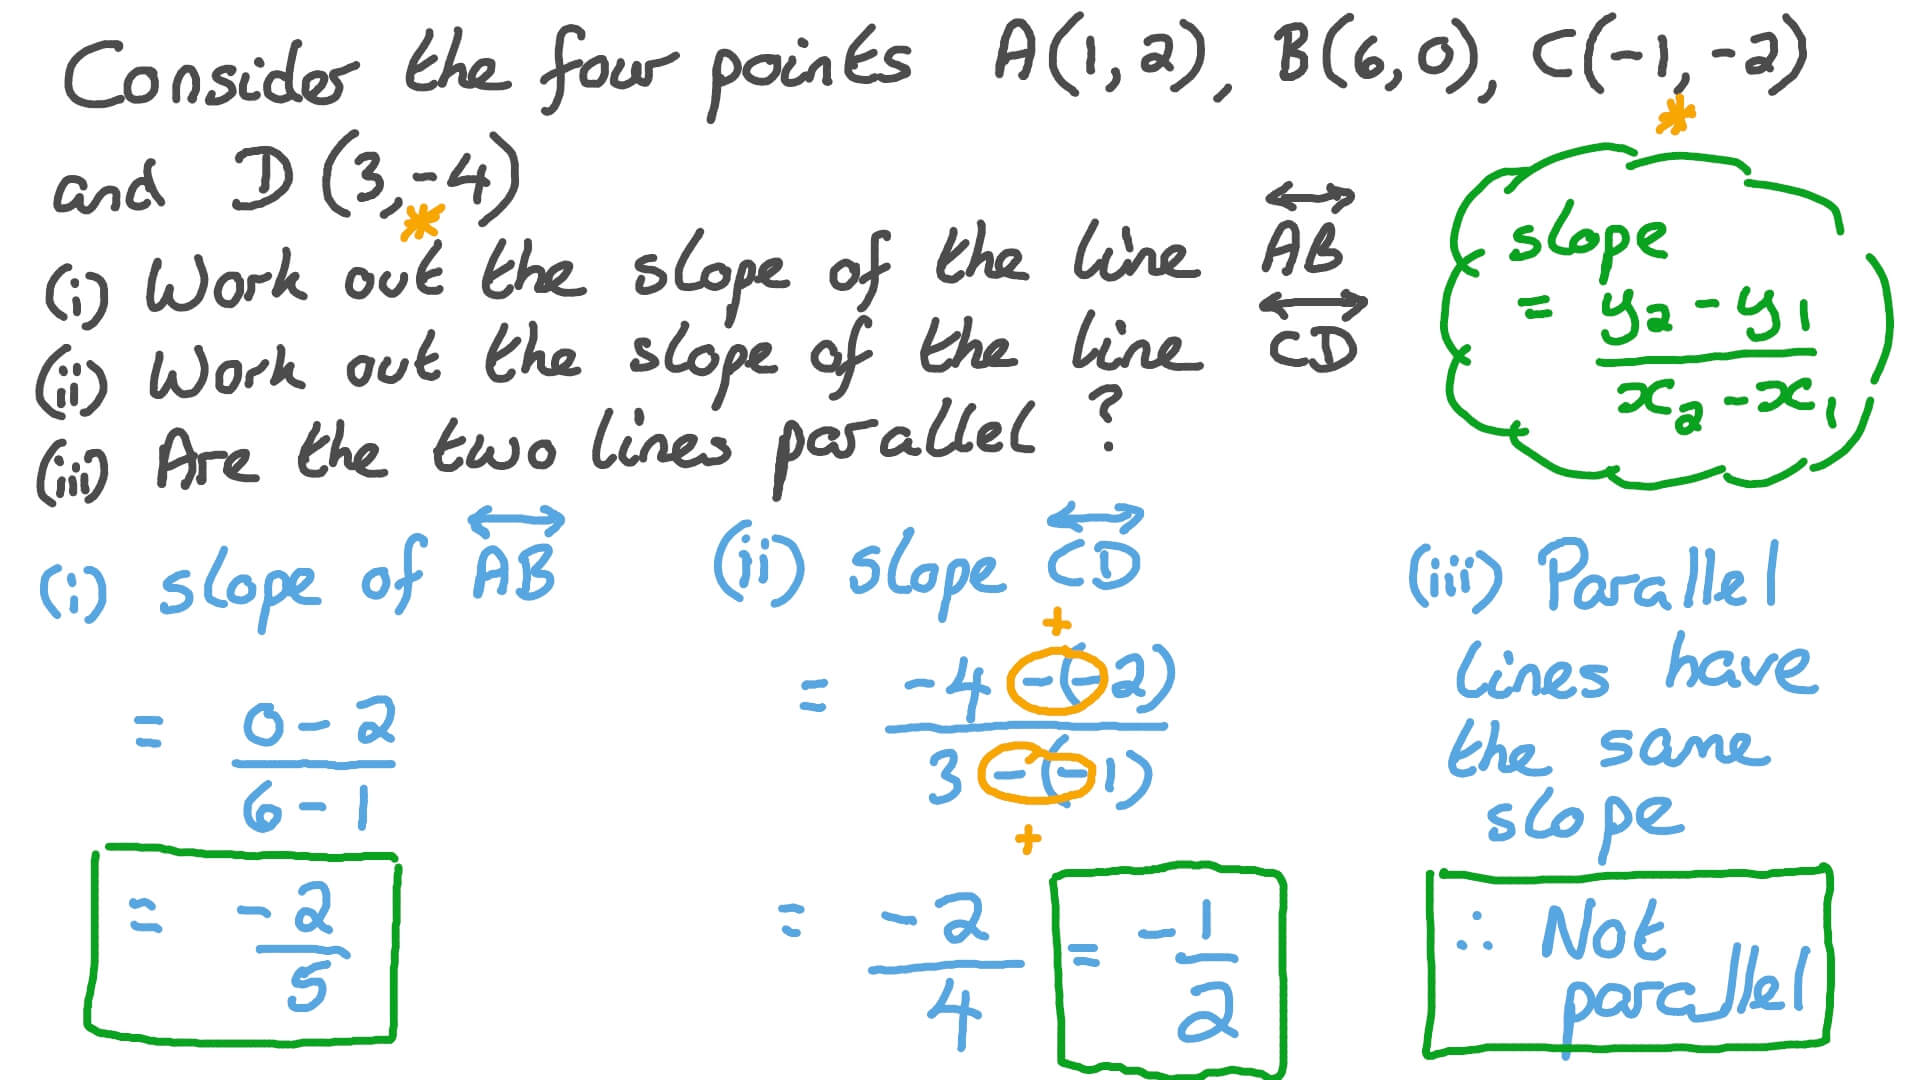 Consider the four points A(1,2), B(6,0), C(-1,-2)
and D(3,-4)
(i) Work out the slope of the line AB
(ii) Work out the slope of the line CD
(iii) Are the two lines parallel?
slope
= y₂ - y₁
x₂ - x₁
(i) slope of AB
= 0 - 2
6 - 1
= -2
5
(ii) slope CD
+
= -4 -(-2)
3 -(-1)
+
= -2
4
= -1
2
(iii) Parallel
lines have
the same
slope
∴ Not
parallel